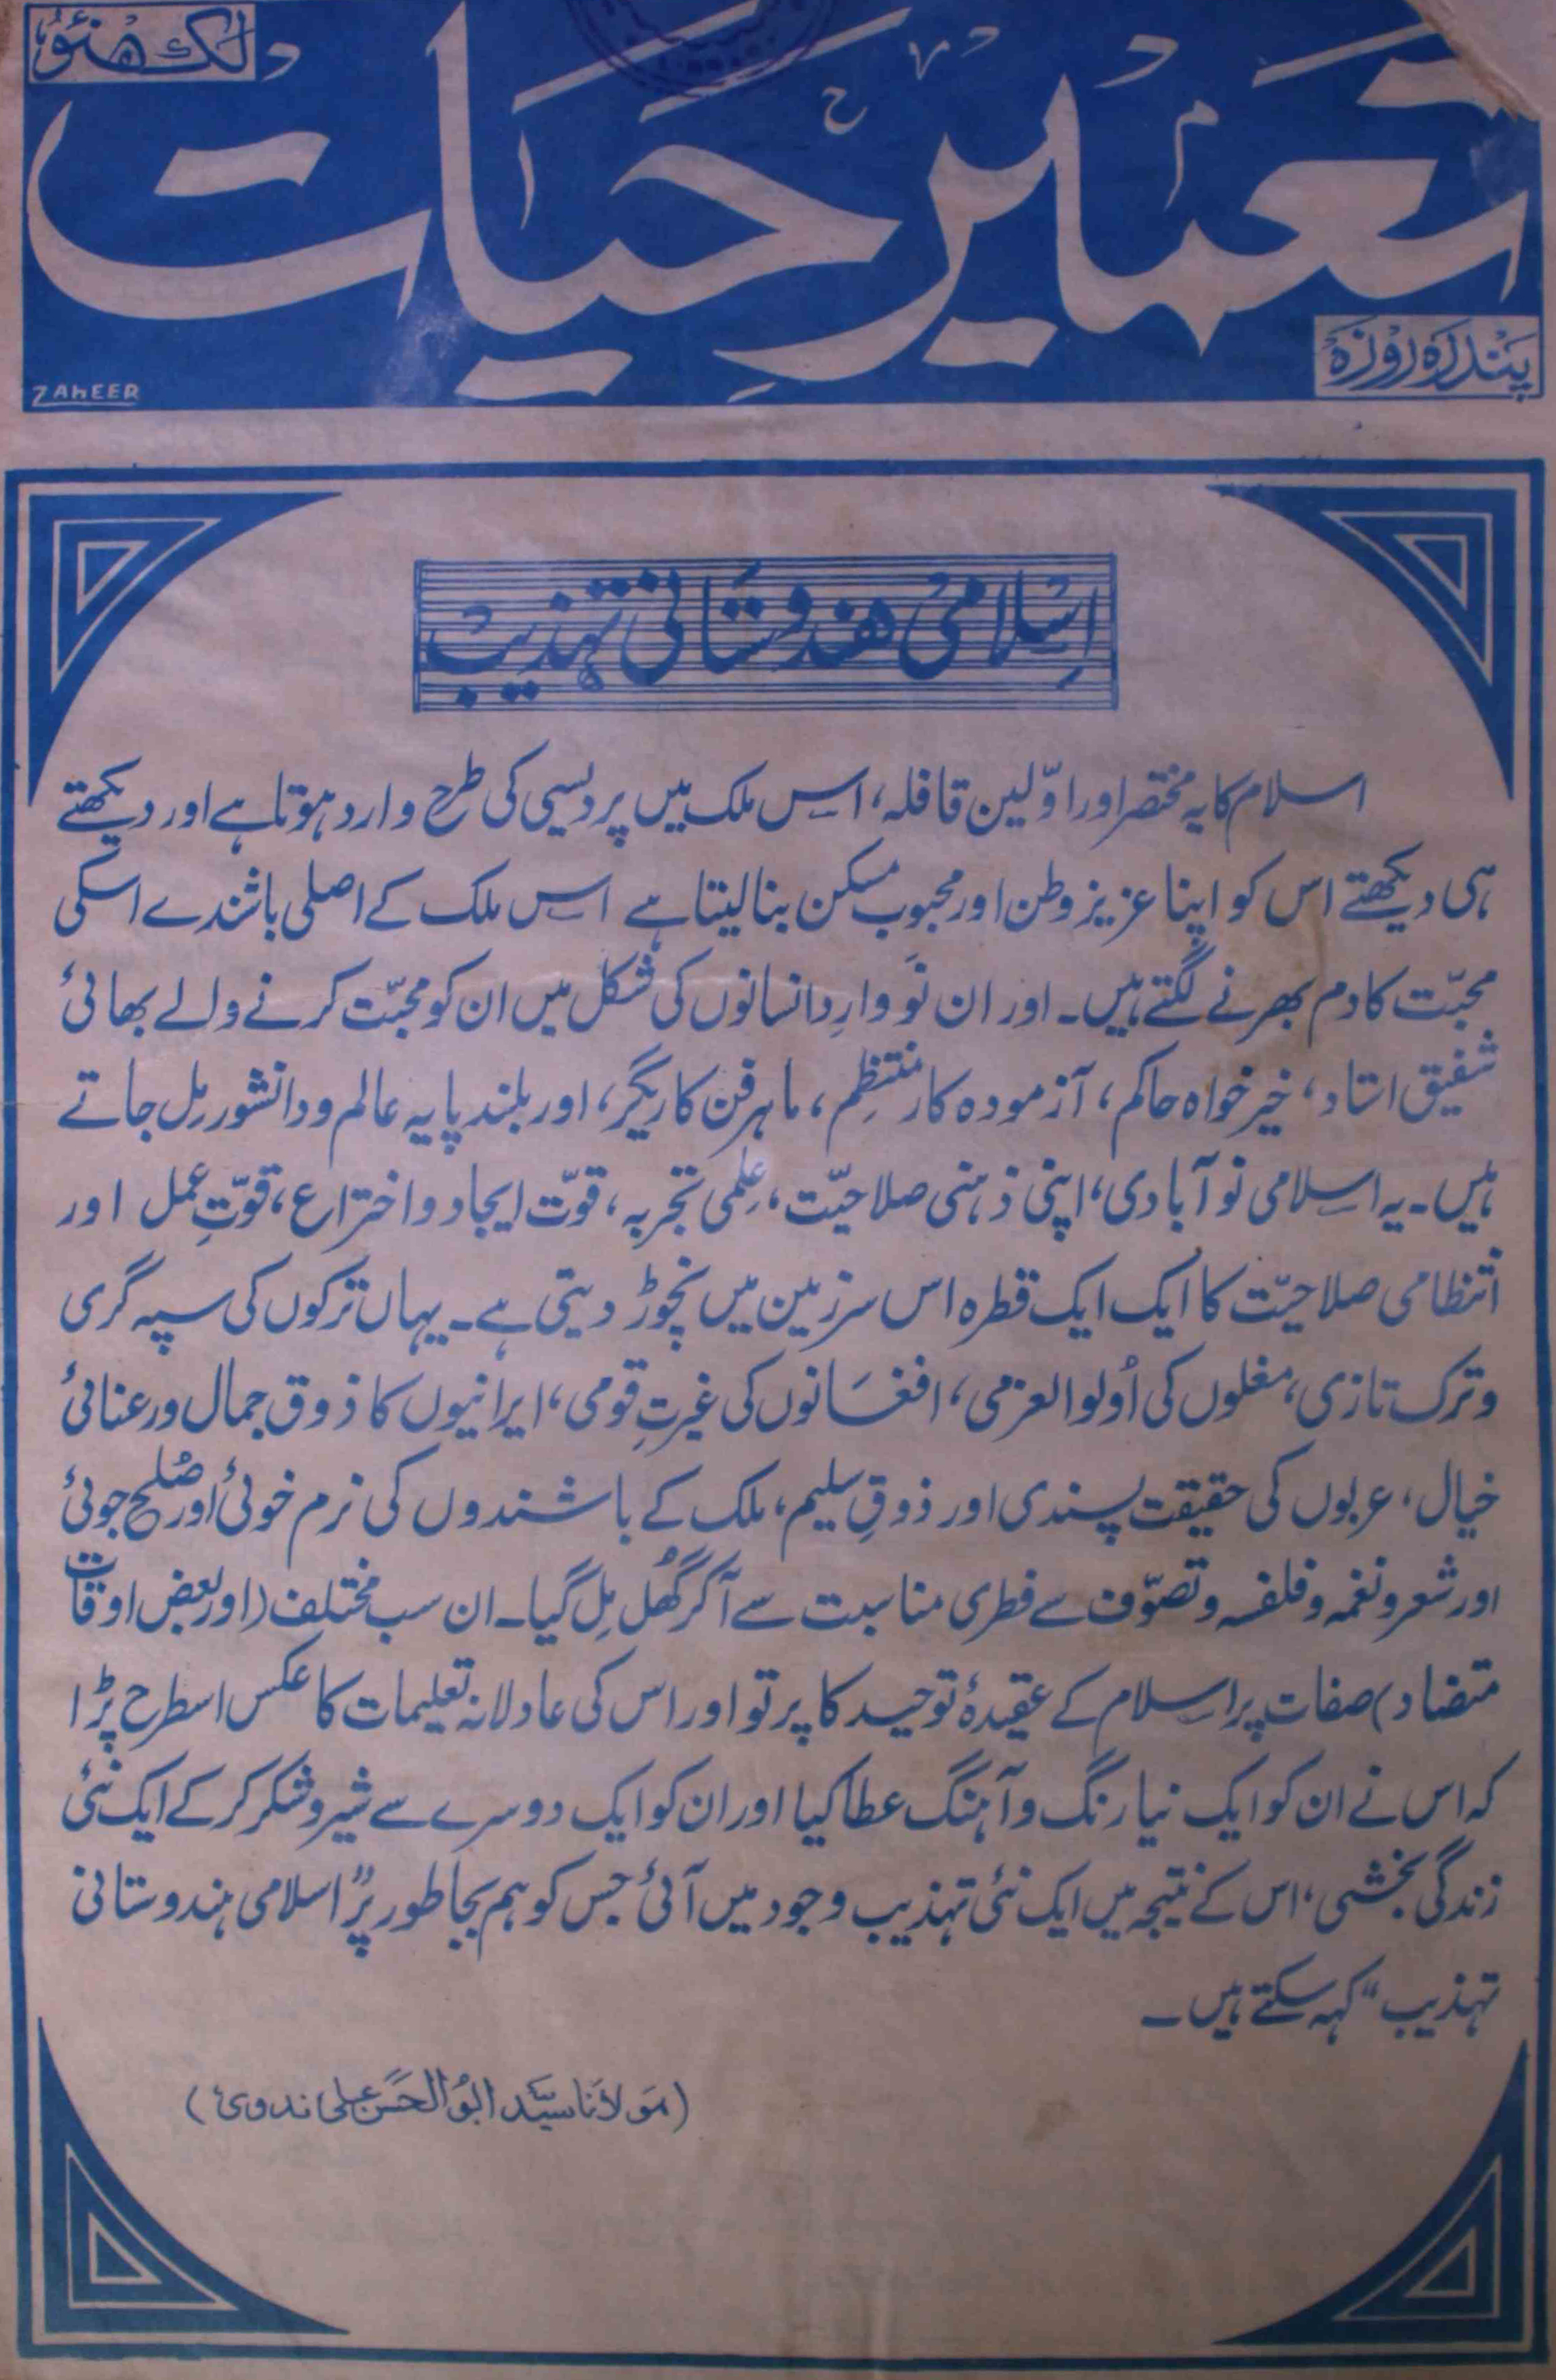 لکھنؤ
تعمیر حیات
پندرہ روزہ
ZAHEER
اسلامی ھندوستانی تہذیب
اسلام کا یہ مختصر اور اوّلین قافلہ، اس ملک میں پردیسی کی طرح وارد ہوتا ہے اور دیکھتے
ہی دیکھتے اس کو اپنا عزیز وطن اور محبوب مسکن بنا لیتا ہے اس ملک کے اصلی باشندے اسکی
محبّت کا دم بھرنے لگتے ہیں۔ اور ان نَو وارِد انسانوں کی شکل میں ان کو محبّت کرنے والے بھائی
شفیق استاد، خیر خواہ حاکم، آزمودہ کار منتظِم، ماہر فن کاریگر، اور بلند پایہ عالم و دانشور مِل جاتے
ہیں۔ یہ اسلامی نو آبادی، اپنی ذہنی صلاحیّت، عِلمی تجربہ، قوّت ایجاد و اختراع، قوّتِ عمل اور
انتظامی صلاحیّت کا ایک ایک قطرہ اس سرزمین میں نچوڑ دیتی ہے۔ یہاں ترکوں کی سپہ گری
و ترک تازی، مغلوں کی اُولوالعزمی، افغانوں کی غیرتِ قومی، ایرانیوں کا ذوق جمال و رعنائی
خیال، عربوں کی حقیقت پسندی اور ذوقِ سلیم، ملک کے باشندوں کی نرم خوئی اور صُلح جوئی
اور شعر و نغمہ و فلفسہ و تصوّف سے فطری مناسبت سے آکر گھُل مِل گیا۔ ان سب مختلف (اور بعض اوقات
متضاد) صفات پر اسلام کے عقیدۂ توحید کا پرتو اور اس کی عادلانہ تعلیمات کا عکس اسطرح پڑا
کہ اس نے ان کو ایک نیا رنگ و آہنگ عطا کیا اور ان کو ایک دوسرے سے شیر و شکر کر کے ایک نئی
زندگی بخشی، اس کے نتیجہ میں ایک نئی تہذیب وجود میں آئی جس کو ہم بجا طور پر "اسلامی ہندوستانی
تہذیب" کہہ سکتے ہیں۔
(مَولانا سیّد ابوُالحَسَن عَلی ندوی)